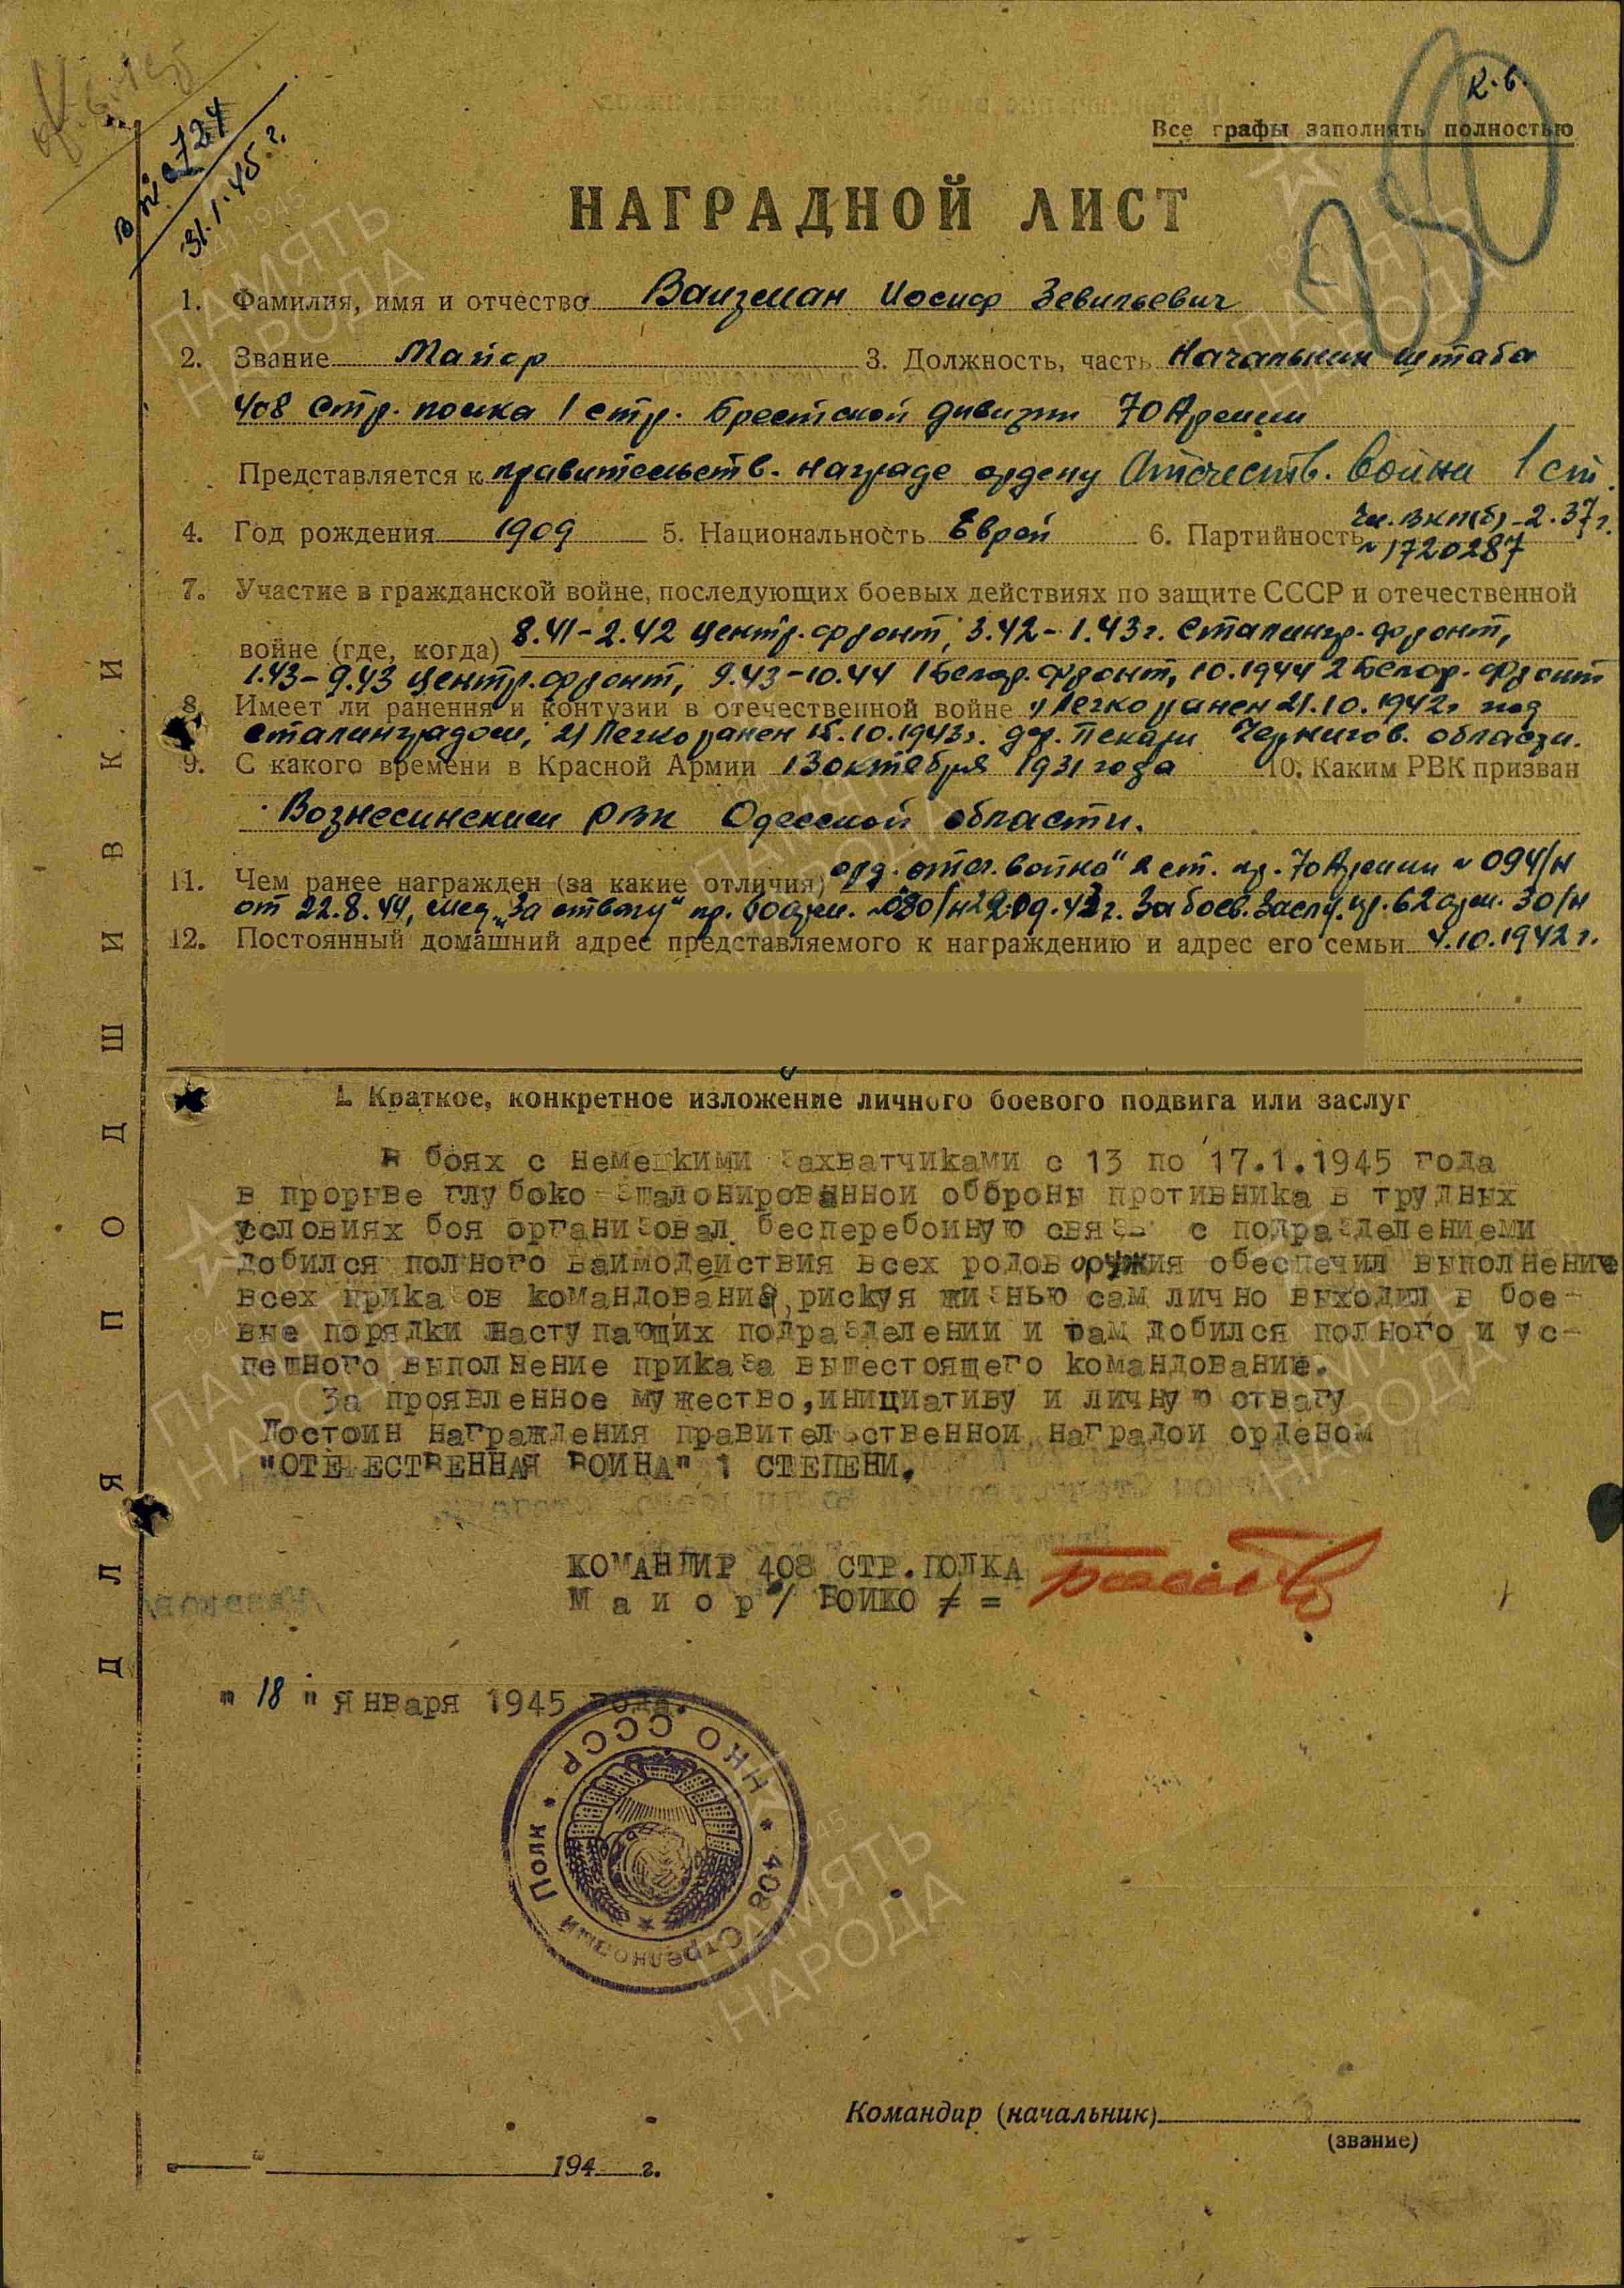 в № 0724
31.1.45 г.
К.б.
Все графы заполнять полностью
НАГРАДНОЙ ЛИСТ
1. Фамилия, имя и отчество Ваизман Иосиф Зевильевич
2. Звание Майор 3. Должность, часть Начальник штаба
408 Стр. полка 1 стр. Брестской дивизии 70 Армии
Представляется к правительств. награде ордену Отечеств. Война 1 ст.
4. Год рождения 1909 5. Национальность Еврей 6. Партийность Чл. ВКП(б) - 2.37 г.
№ 1720287
7. Участие в гражданской войне, последующих боевых действиях по защите СССР и отечественной
войне (где, когда) 8.41 - 2.42 Центр. фронт, 3.42 - 1.43 г. Сталингр. фронт,
1.43 - 9.43 Центр. фронт, 9.43 - 10.44 1 Белор. фронт, 10.1944 2 Белор. фронт
8. Имеет ли ранения и контузии в отечественной войне 1) Легко ранен 21.10.1942 г. под
Сталинградом, 2) Легко ранен 15.10.1943 г. дер. Пекари Чернигов. области.
9. С какого времени в Красной Армии 13 октября 1931 года 10. Каким РВК призван
Вознесинским РВК Одесской области.
11. Чем ранее награжден (за какие отличия) орд. „Отеч. война" 2 ст. пр. 70 Армии № 094/н
от 22.8.44, мед. „За отвагу" пр. 60 арм. № 080/н 29.09.43 г. За боев. Заслу. пр. 62 арм. 30/н
12. Постоянный домашний адрес представляемого к награждению и адрес его семьи 4.10.1942 г.
1. Краткое, конкретное изложение личного боевого подвига или заслуг
В боях с немецкими захватчиками с 13 по 17.1.1945 года
в прорыве глубоко эшалонированной обороны противника в трудных
условиях боя организовал бесперебойную связь с подразделениеми
добился полного ваимодействия всех родов оружия обеспечил выполнение
всех приказов командования, рискуя жизнью сам лично выходил в бое-
вые порядки наступающих подразделений и там добился полного и ус-
пешного выполнение приказа вышестоящего командование.
За проявленное мужество, инициативу и личную отвагу
Достоин награждения правительственной наградой орденом
"ОТЕЧЕСТВЕННАЯ ВОЙНА" 1 СТЕПЕНИ.
КОМАНДИР 408 СТР. ПОЛКА
Майор / БОЙКО / =
" 18 " января 1945 года.
НКО СССР * 408 Стрелковый Полк *
Командир (начальник)
(звание)
" " 194 г.
ДЛЯ ПОДШИВКИ
ПАМЯТЬ НАРОДА
1941-1945